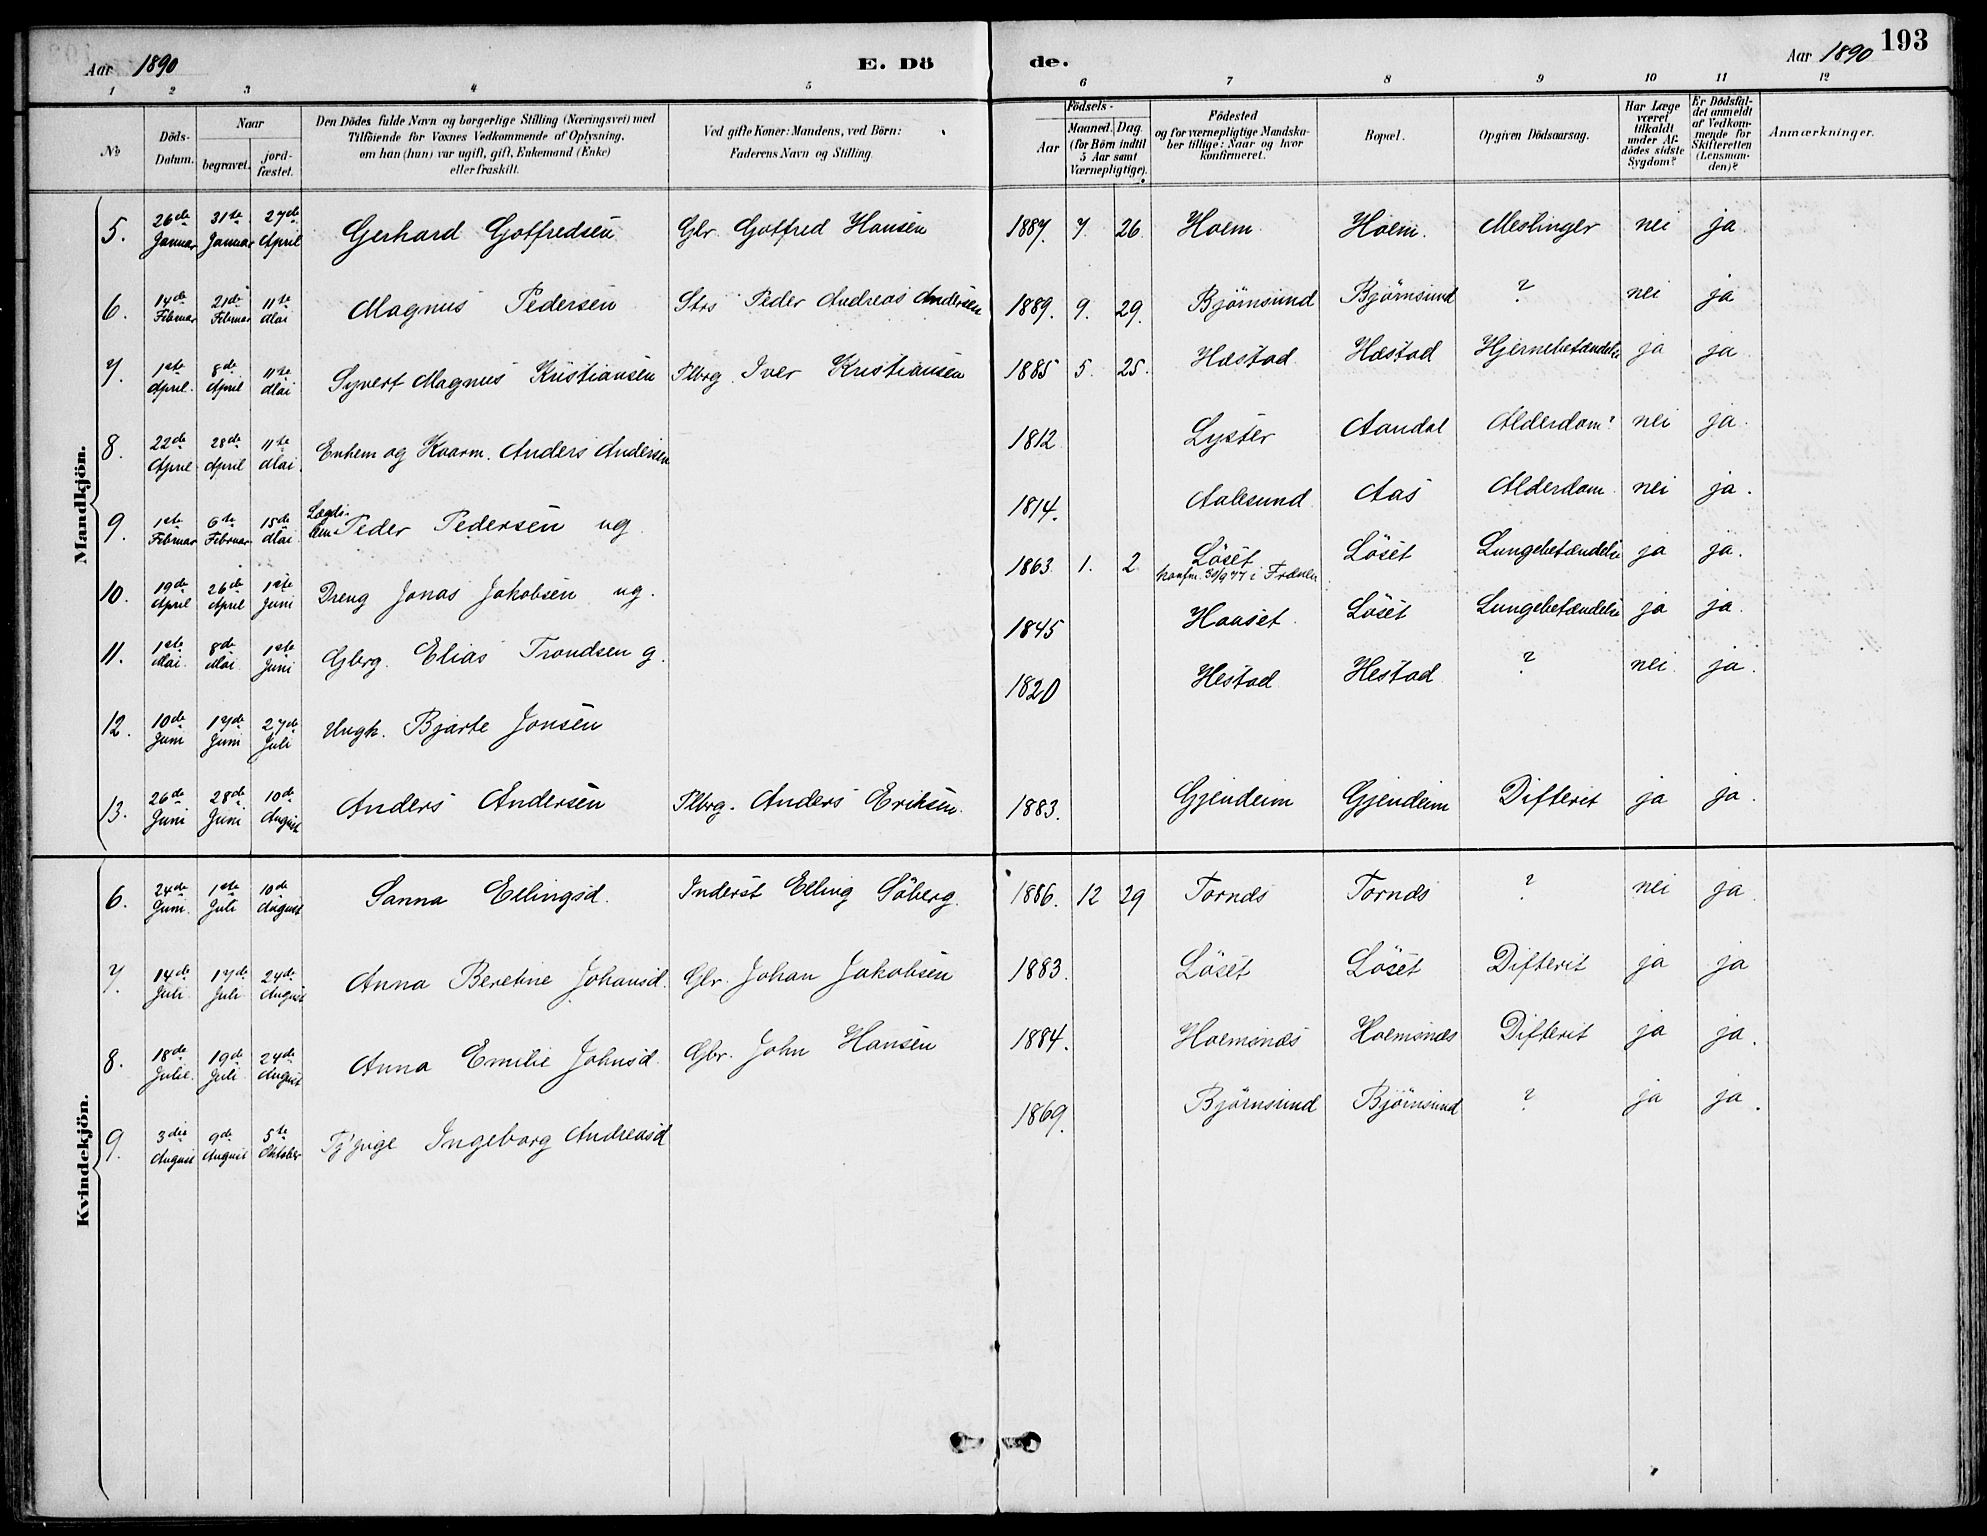 Aar 1890
E. Dö
de.
Aar 1890
193
1 2 3 4 5 6 7 8 9 10 11 12
№
Döds-
Datum.
Naar
begravet.
jord-
fæstet.
Den Dödes fulde Navn og borgerlige Stilling (Næringsvei) med
Tilföiende for Voxnes Vedkommende af Oplysning,
om han (hun) var ugift, gift, Enkemand (Enke)
eller fraskilt.
Ved gifte Koner: Mandens, ved Börn:
Faderens Navn og Stilling.
Födsels-
Aar
Maaned. Dag
(for Börn indtil
5 Aar samt
Værnepligtige).
Födested
og for værnepligtige Mandska-
ber tillige: Naar og hvor
konfirmeret.
Bopæl.
Opgiven Dödsaarsag.
Har Læge
været
tilkaldt
under Af-
dödes sidste
Sygdom?
Er Dödsfal-
det anmeldt
af Vedkom-
mende for
Skifteretten
(Lensman-
den)?
Anmærkninger.
Mandkjön.
5. 26de Januar 31te Januar 27de April Gerhard Gotfredsen Gbr. Gotfred Hansen 1887. 7. 26. Holm Holm. Meslinger nei ja.
6. 14de Februar 21de Februar 11te Mai Magnus Pedersen Strs Peder Andreas Andersen 1889. 9. 29. Björnsund Björnsund ? nei ja
7. 1ste April. 8de April 11te Mai Syvert Magnus Kristiansen Plbrg. Iver Kristiansen 1885 5. 25. Hæstad Hæstad Hjernebetændelse ja ja
8. 22de April 28de April 11te Mai. Enkem og Kaarm. Anders Andersen 1812 Lyster Aandal Alderdom? nei ja.
9. 1ste Februar 6te Februar 15de Mai Lægds-
lem Peder Pedersen ug 1814. Aalesund Aas Alderdom. nei ja.
10. 19de April 26de April 1ste Juni Dreng Jonas Jakobsen ug. 1863 1. 2 Löset
konfm. 30/9 77 i Frænen Löset Lungebetændelse ja ja.
11. 1ste Mai. 8de Mai 1ste Juni Gbrg. Elias Trondsen g. 1845 Hauset Löset Lungebetændelse ja ja.
12. 10de Juni 17de Juni 27de Juli Ungk. Bjarte Jonsen 1820 Hestad Hestad ? nei ja.
13. 26de Juni 28de Juni 10de August Anders Andersen Plbrg. Anders Eriksen. 1883. Gjendeim Gjendeim Difterit ja ja.
Kvindekjön.
6. 24de Juni. 1ste Juli 10de August Sanna Ellingsd. Inderst Elling Söberg. 1886. 12 29 Tornæs Tornæs ? nei ja.
7. 14de Juli 17de Juli 24de August Anna Beretine Johansd. Gbr. Johan Jakobsen 1883. Löset Löset Difterit ja ja
8. 18de Julie. 19de Juli 24de August Anna Emilie Johnsd. Gbr. John Hansen 1884. Holmsnæs Holmsnæs Difterit ja ja.
9. 3die August 9de August 5te Oktober Tj'pige Ingeborg Andreasd 1869. Björnsund Björnsund ? ja ja.